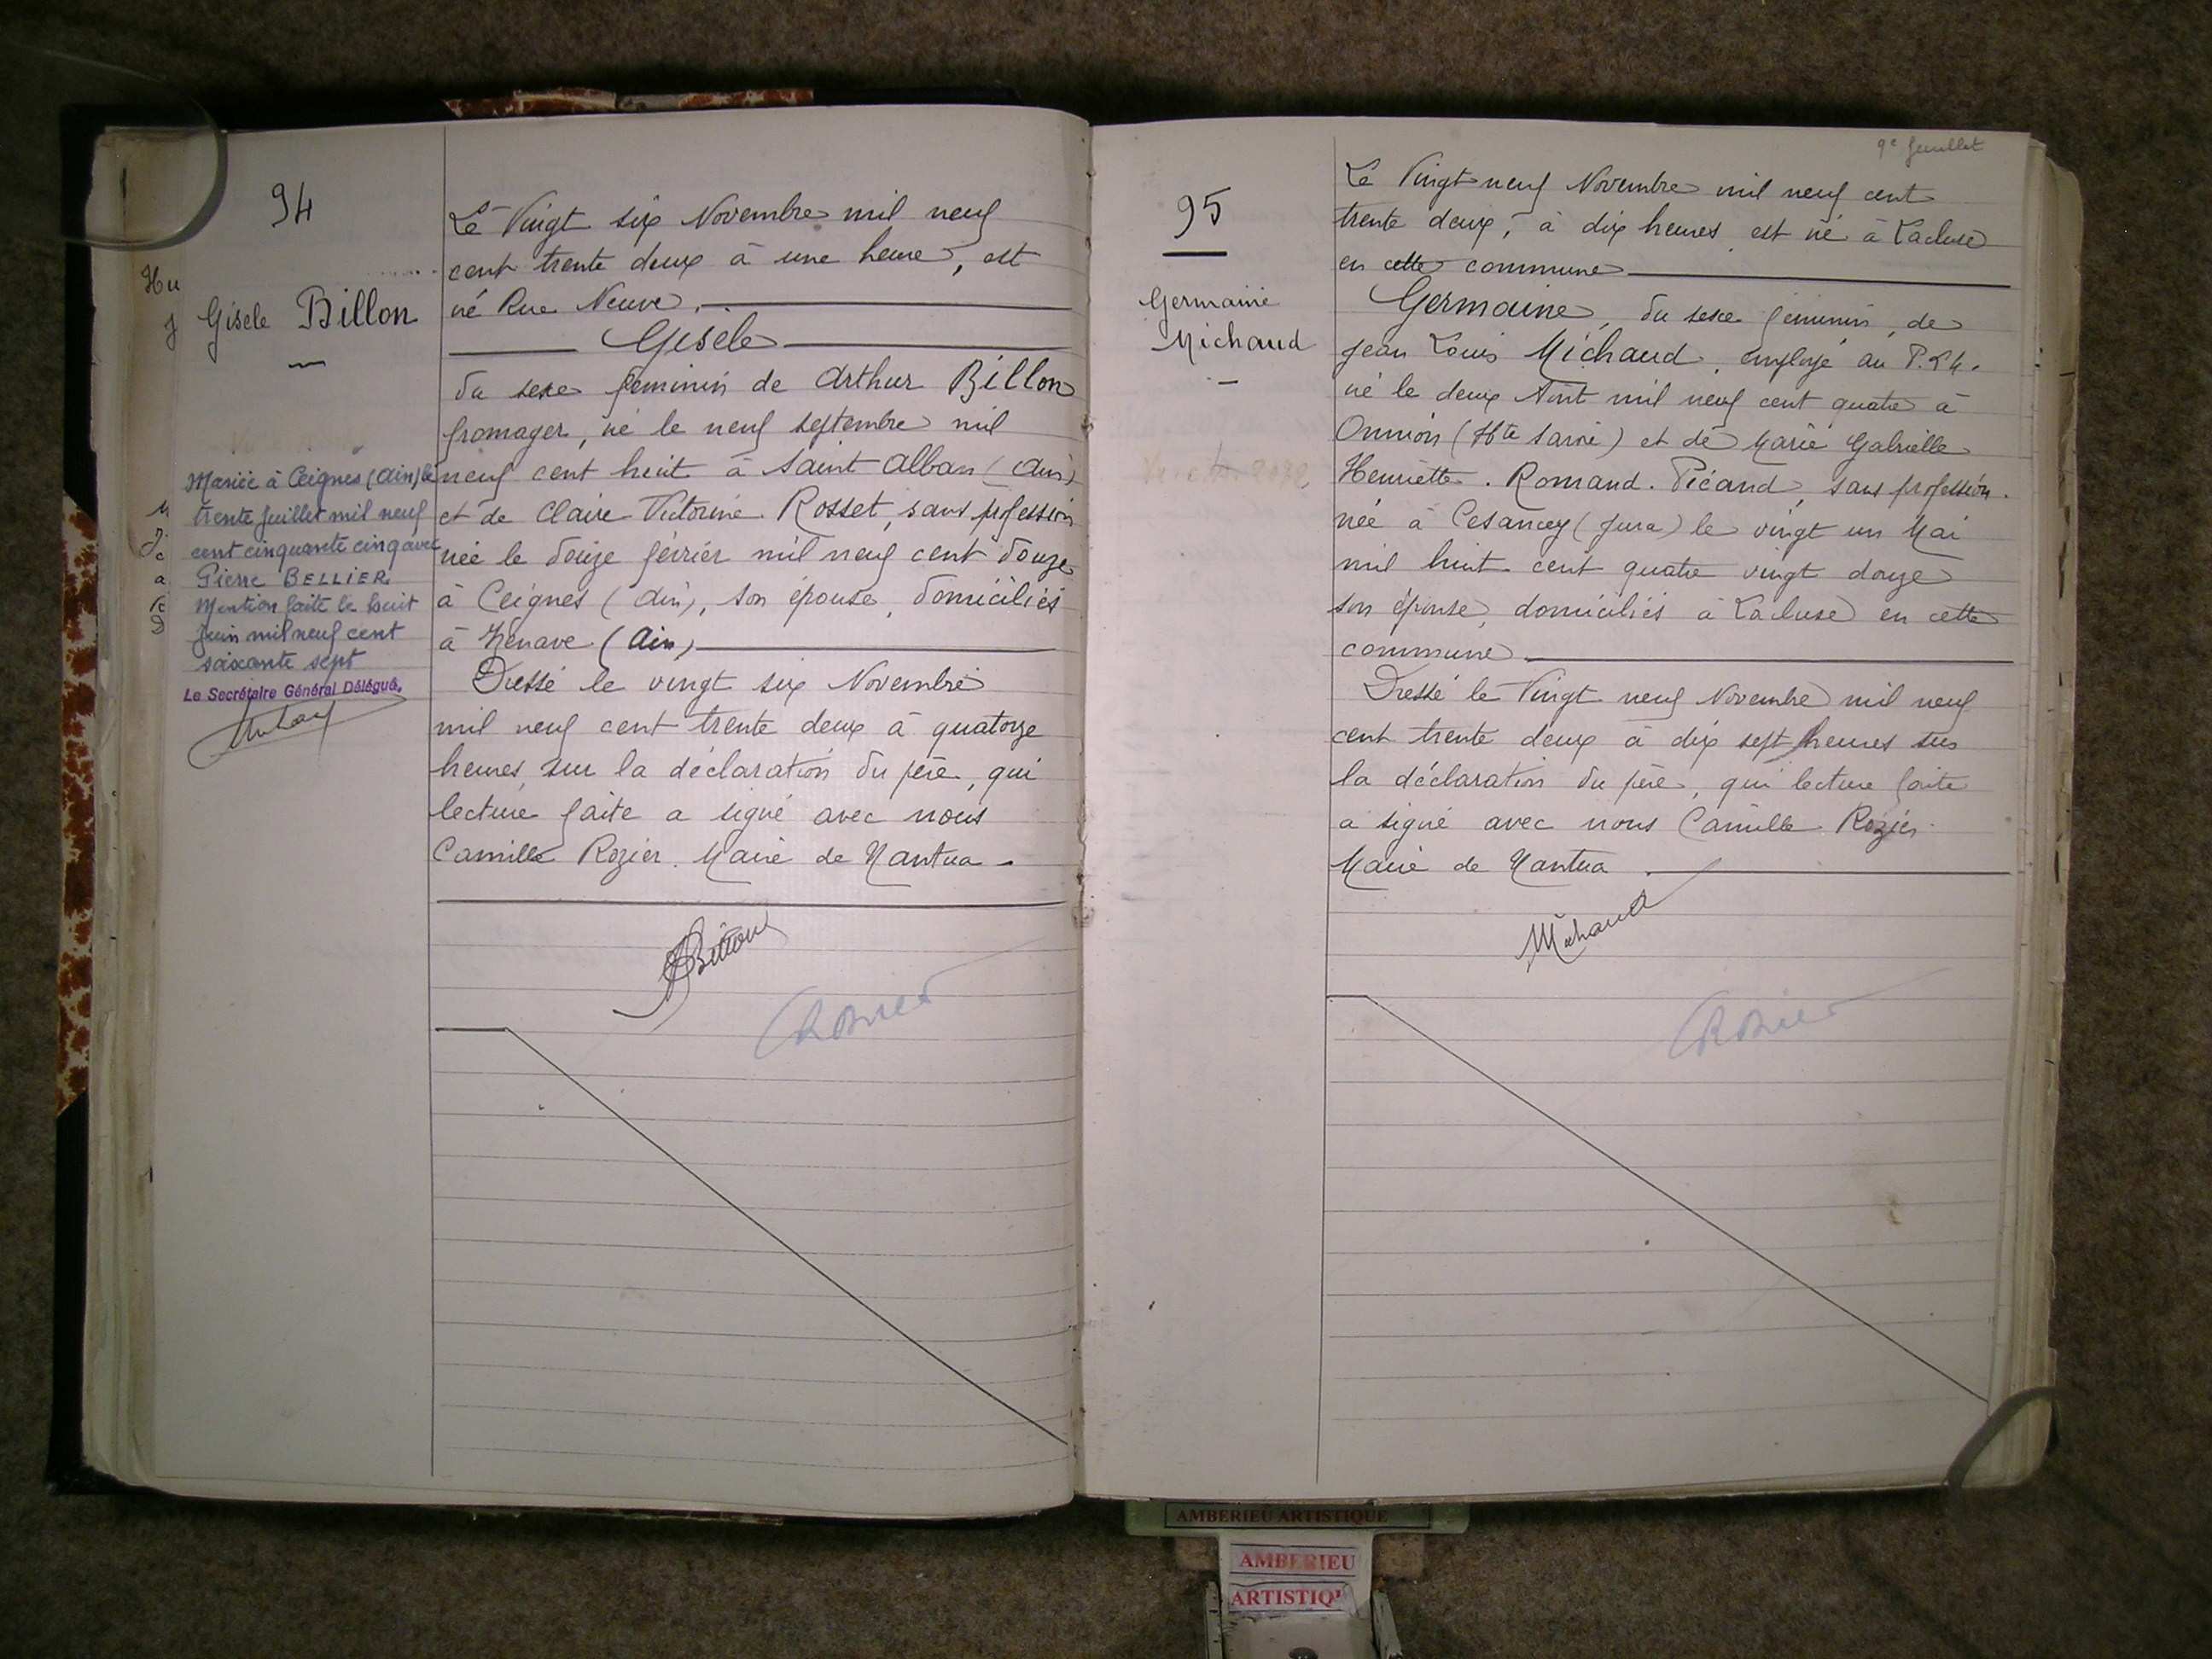 94
Hu
J
Gisele Billon
Mariée à Ceignes (Ain) le
trente Juillet mil neuf
cent cinquante cinq avec
Pierre BELLIER
Mention faite le huit
Juin mil neuf cent
soixante sept
Le Secrétaire Général Délégué,
Le Vingt six Novembre mil neuf
cent trente deux à une heure, est
né Rue Neuve.
Gisele
du sexe féminin de Arthur Billon
fromager, né le neuf septembre mil
neuf cent huit à Saint Alban (Ain)
et de Claire Victorine Rosset, sans profession
née le douze février mil neuf cent douze
à Ceignes (Ain), son épouse, domiciliés
à Lenave (Ain)
Dressé le vingt six Novembre
mil neuf cent trente deux à quatorze
heures, sur la déclaration du père, qui
lecture faite a signé avec nous
Camille Rozier. Maire de Nantua -
ABillon
CRozier
9e feuillet
95
Germaine
Michaud
Le Vingt neuf Novembre mil neuf cent
trente deux, à dix heures est né à Lacluse
en cette commune
Germaine, du sexe féminin, de
Jean Louis Michaud, employé au P.L.M.
né le deux Août mil neuf cent quatre à
Onnion (Hte Savoie) et de Marie Gabrielle
Henriette. Romand. Picand, sans profession.
née à Cesancey (Jura) le vingt un Mai
mil huit cent quatre vingt douze
son épouse, domiciliés à Lacluse en cette
commune
Dressé le Vingt neuf Novembre mil neuf
cent trente deux à dix sept heures sur
la déclaration du père, qui lecture faite
a signé avec nous Camille Rozier
Maire de Nantua.
Michaud
CRozier
AMBERIEU ARTISTIQUE
AMBERIEU
ARTISTIQ